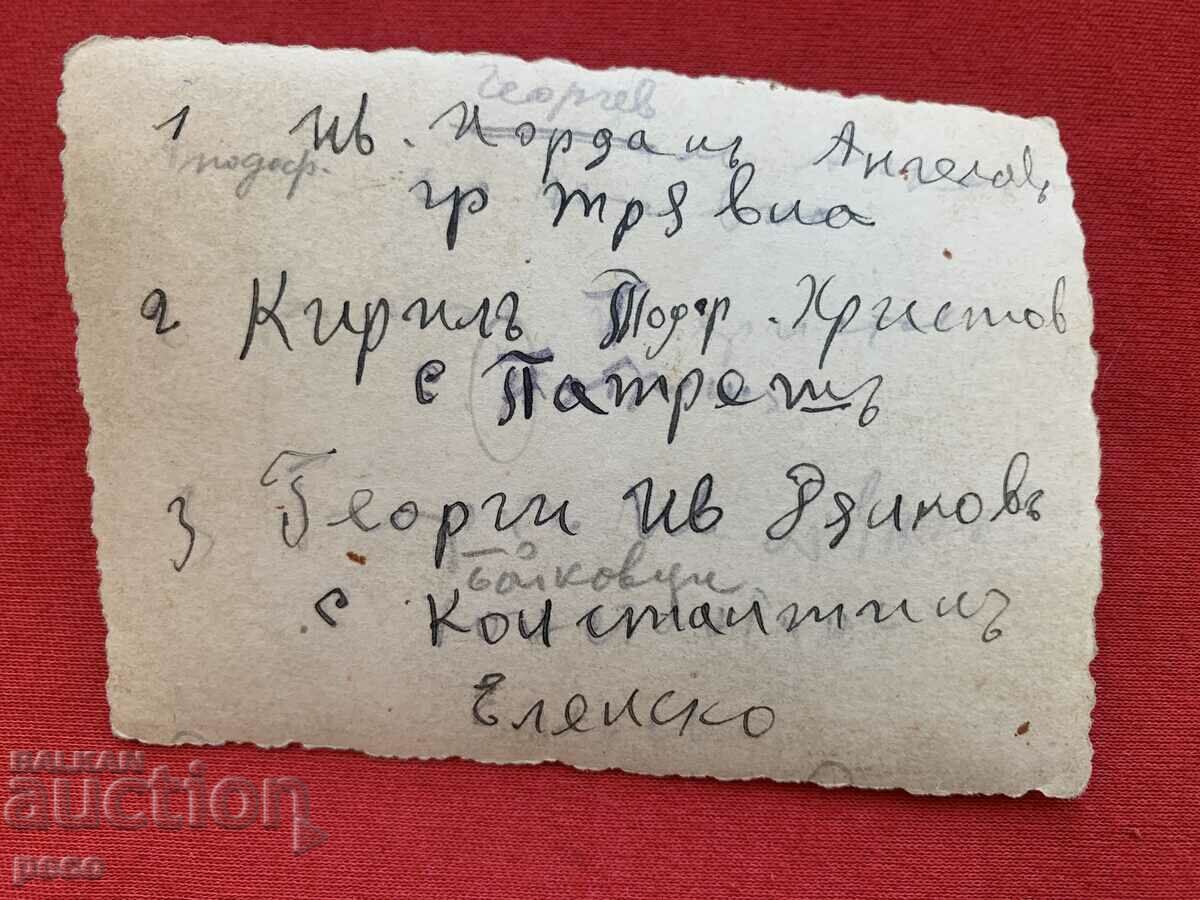 Георгев
1 Ив. Йорданъ Ангеловъ
подоф.
гр Трявна
2 Кирилъ Тодор. Христов
с Патрешъ
3 Георги Ив
Балковци
с Константинъ
Еленско
BALKAN
auction
peso